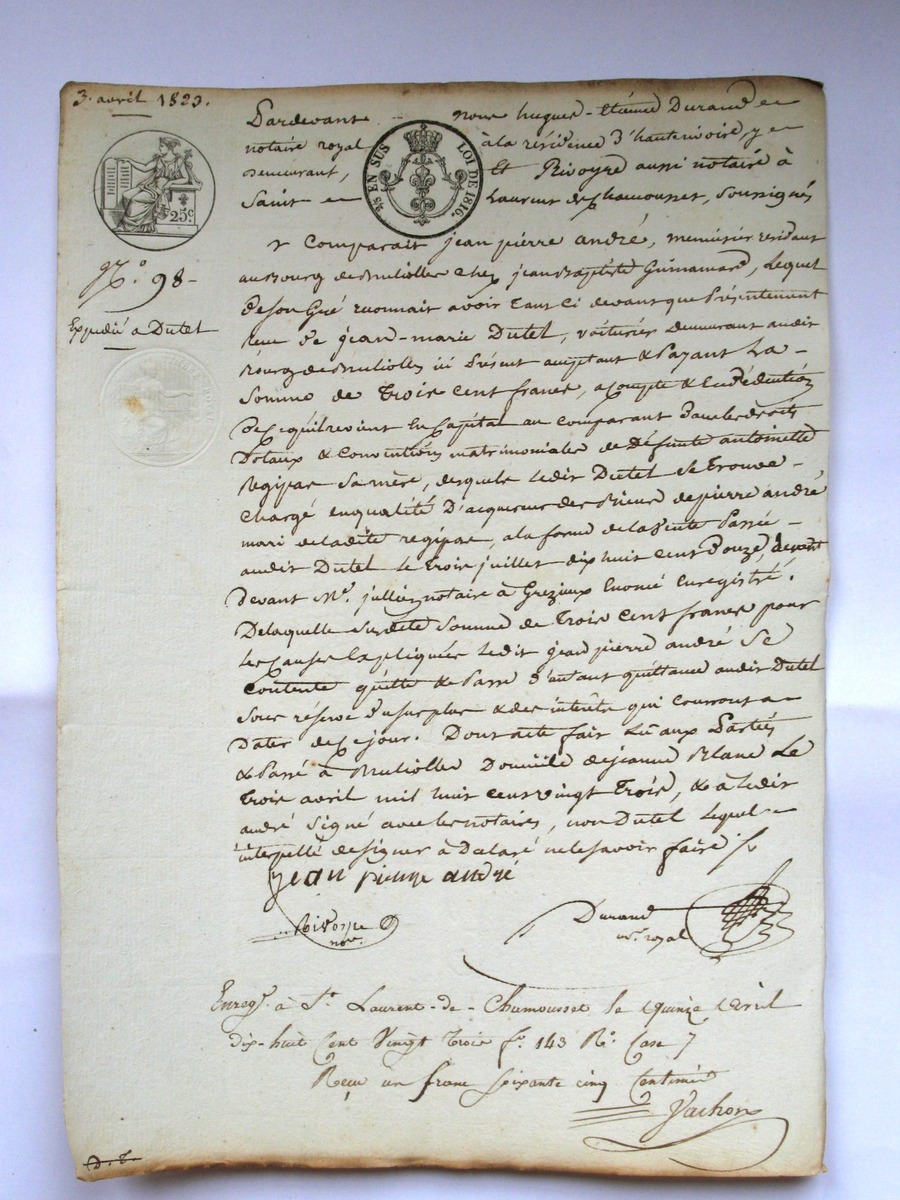 3. avril 1823.
Pardevant nous hugues-étienne Durand
notaire royal à la résidence d'hauterivoire, y
demeurant, Et Rivoyre aussi notaire à
Saint Laurent de Chamousset, soussignés
2/5 EN SUS LOI DE 1816.
25c.
N.o 98-
Expédié a Dutel
Y Comparait jean pierre andré, menuisier residant
au Bourg de Brullolles chez jean Baptiste Guinamard, Lequel
de son Gré reconnait avoir Tant Ci devant que Présentement
reçu de jean-marie Dutel, voiturier demeurant audit
Bourg de Brullolles ici Présent acceptant & Payant La
Somme de Trois Cent francs, a Compte & En Déduction
De Ce qui Revient En Capital au comparant dans les droits
Dotaux & Conventions matrimoniales de Défunte antoinette
Regipas Sa mère, desquels ledit Dutel se Trouve
chargé en qualité D'acquéreur des Biens de pierre andré
mari de ladite regipas, a la forme de la Vente Passée
audit Dutel le Trois juillet dix huit cent Douze, devant
devant Me. jullien notaire à Grezieux Enregistré.
De laquelle Susdite Somme de Trois Cent francs pour
Les Causes Expliquées ledit jean pierre andré Se
Contente quitte & Passe d'autant quittance audit Dutel
Sous réserve du surplus & des intérêts qui courront a
Dater de Ce jour. Dont acte fait Lû aux Parties
& Passé à Brullolles Domicile de jeanne Blanc Le
Trois avril mil huit cent vingt Trois, & a ledit
andré Signé avec les notaires, non Dutel lequel
interpellé de signer à Déclaré ne le savoir faire
jean pierre andré
Rivoyre
nore.
Durand
nre. royal
Enregé. à St. Laurent-de-Chamousset le quinze avril
dix-huit Cent Vingt trois fo. 143 Ro. Case 7
Reçu un franc Soixante cinq Centimes
Vachon
D. T.